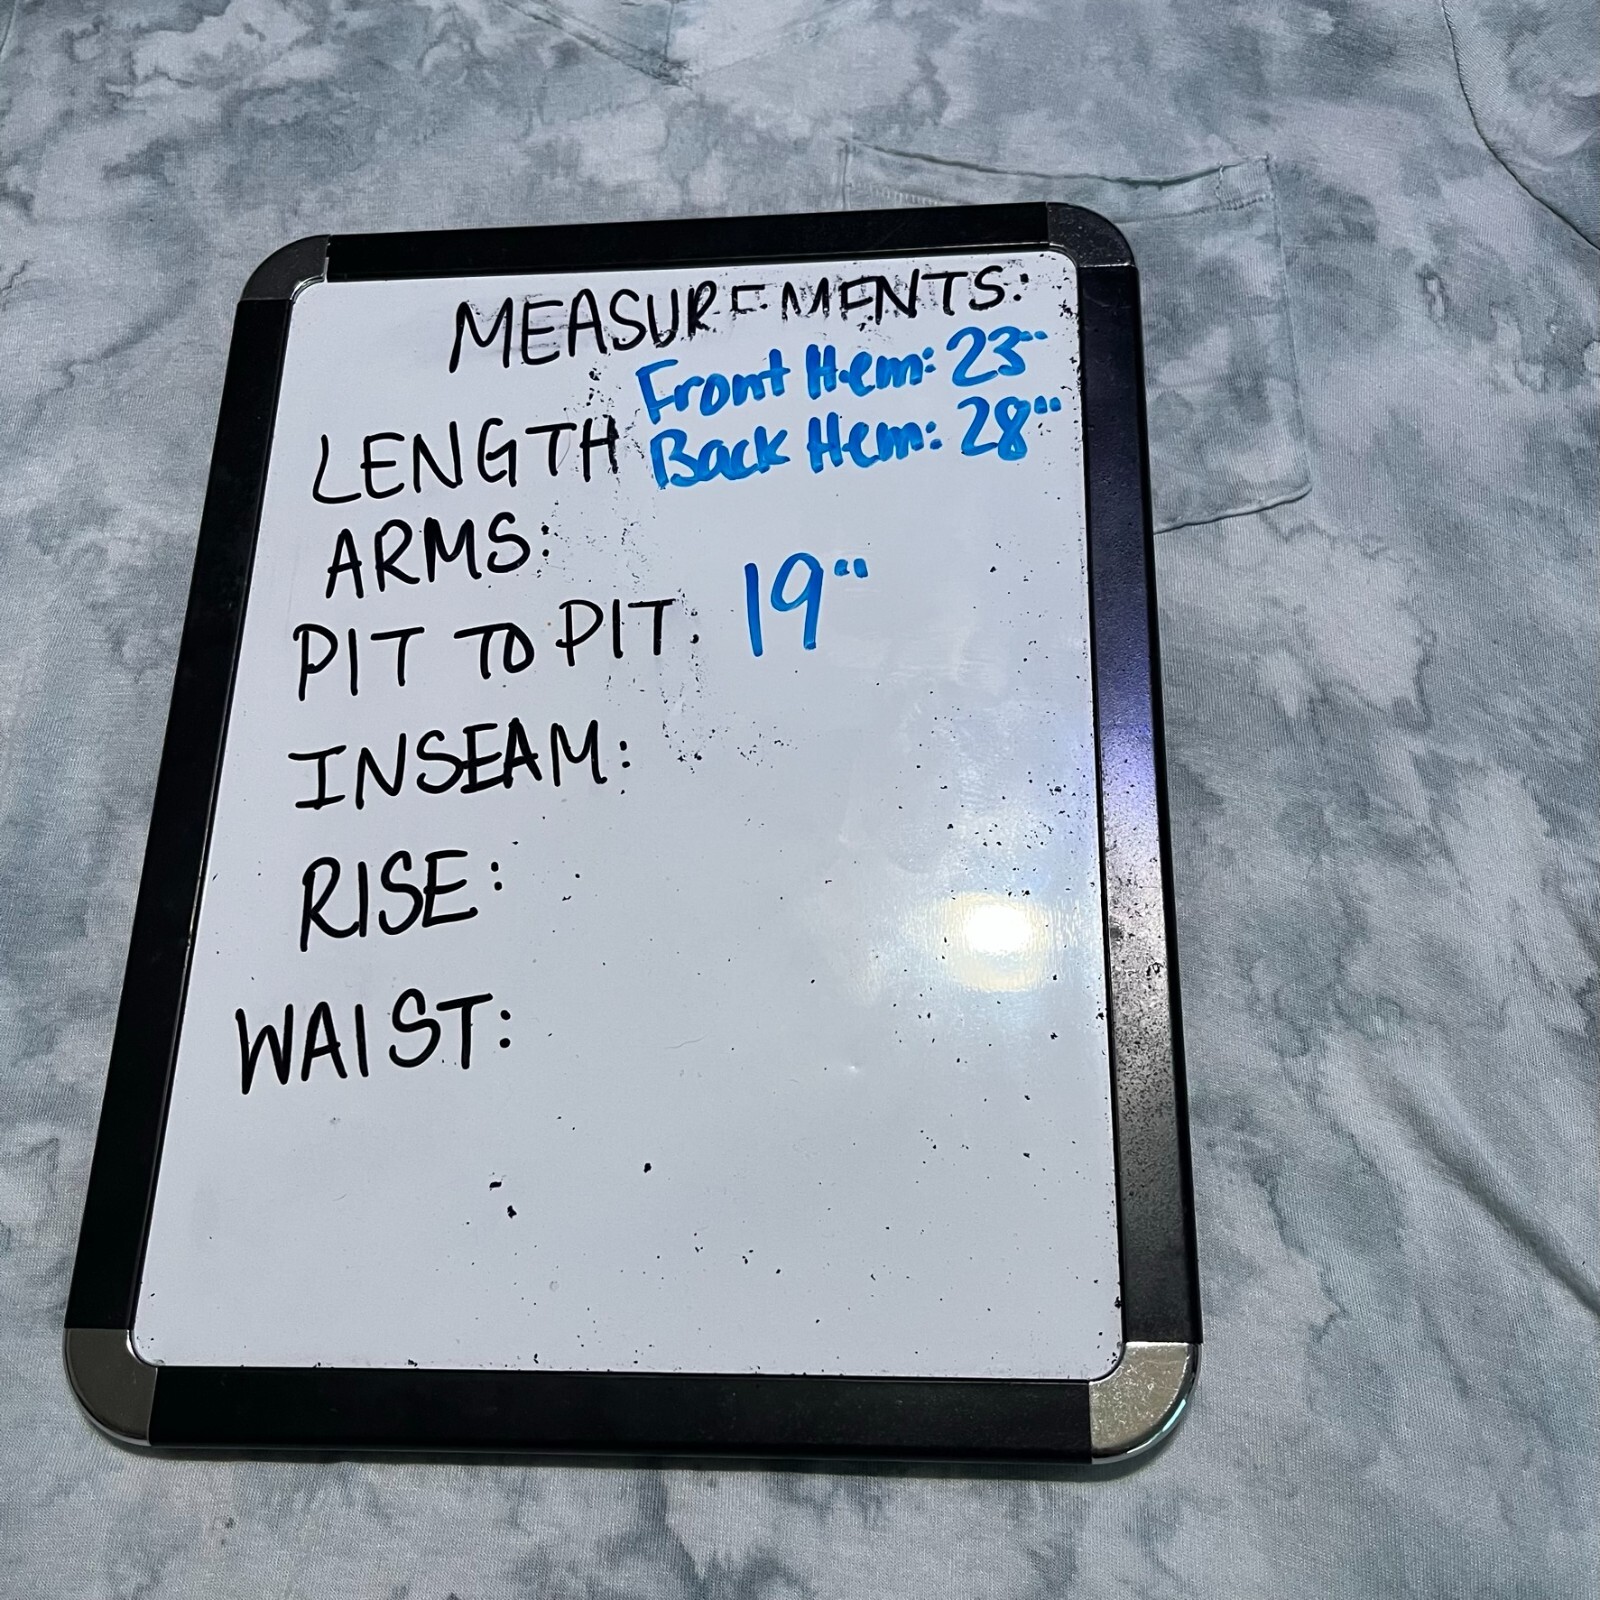 MEASUREMENTS:
Front Hem: 23"
LENGTH Back Hem: 28"
ARMS:
PIT TO PIT: 19"
INSEAM:
RISE:
WAIST: